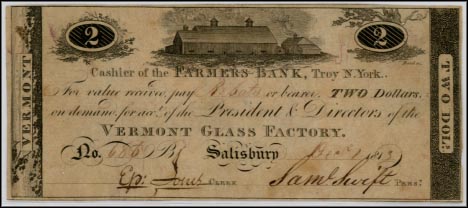 2 2
Cashier of the FARMERS BANK, Troy N.York.
For value received, pay or bearer, TWO Dollars,
on demand, for acct. of the President & Directors of the
VERMONT GLASS FACTORY.
No. Salisbury 1813
Ep: Jones CLERK Saml. Swift PREST.
VERMONT
TWO DOL.